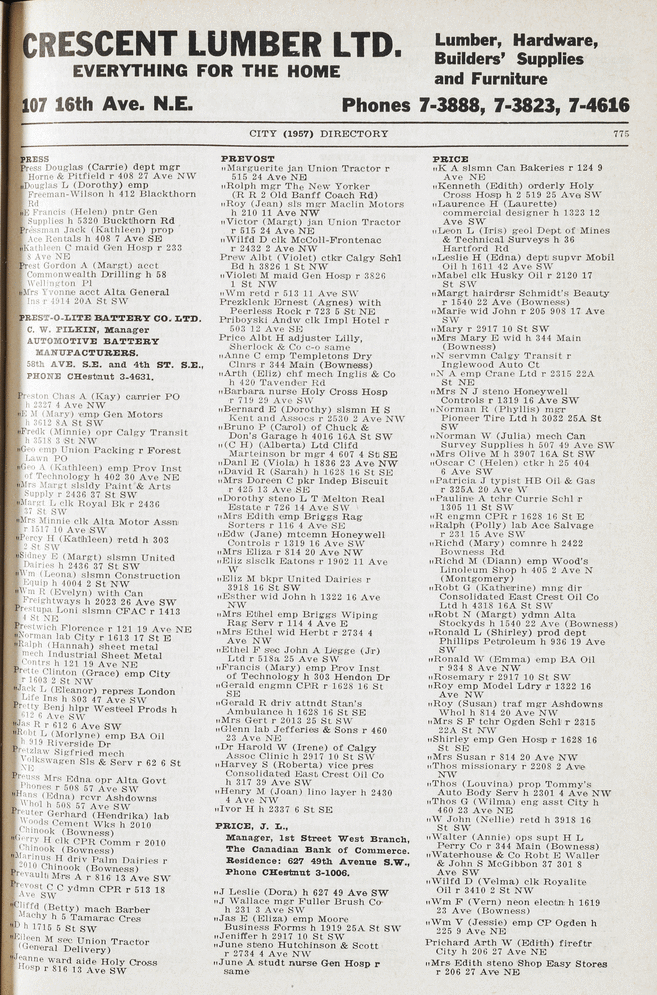 CRESCENT LUMBER LTD.
EVERYTHING FOR THE HOME
Lumber, Hardware,
Builders' Supplies
and Furniture
107 16th Ave. N.E.
Phones 7-3888, 7-3823, 7-4616
CITY (1957) DIRECTORY 775
PRESS
Press Douglas (Carrie) dept mgr
Horne & Pitfield r 408 27 Ave NW
"Douglas L (Dorothy) emp
Freeman-Wilson h 412 Blackthorn
Rd
"E Francis (Helen) pntr Gen
Supplies h 5320 Buckthorn Rd
Pressman Jack (Kathleen) prop
Ace Rentals h 408 7 Ave SE
"Kathleen C maid Gen Hosp r 233
8 Ave NE
Prest Gordon A (Margt) acct
Commonwealth Drilling h 58
Wellington Pl
"Mrs Yvonne acct Alta General
Ins r 4914 20A St SW
PREST-O-LITE BATTERY CO. LTD.
C. W. PILKIN, Manager
AUTOMOTIVE BATTERY
MANUFACTURERS.
58th AVE. S.E. and 4th ST. S.E.,
PHONE CHestnut 3-4631.
Preston Chas A (Kay) carrier PO
h 2227 4 Ave NW
"E M (Mary) emp Gen Motors
h 3612 8A St SW
"Fredk (Minnie) opr Calgy Transit
h 3518 3 St NW
"Geo emp Union Packing r Forest
Lawn PO
"Geo A (Kathleen) emp Prov Inst
of Technology h 402 30 Ave NE
"Mrs Margt slsldy Paint & Arts
Supply r 2436 37 St SW
"Margt L clk Royal Bk r 2436
37 St SW
"Mrs Minnie clk Alta Motor Assn
r 1517 10 Ave SW
"Percy H (Kathleen) retd h 303
2 St SW
"Sidney E (Margt) slsmn United
Dairies h 2436 37 St SW
"Wm (Leona) slsmn Construction
Equip h 4004 2 St NW
"Wm R (Evelyn) with Can
Freightways h 2023 26 Ave SW
Prestupa Loni slsmn CFAC r 1413
4 St NE
Prestwich Florence r 121 19 Ave NE
"Norman lab City r 1613 17 St E
"Ralph (Hannah) sheet metal
mech Industrial Sheet Metal
Contrs h 121 19 Ave NE
Prette Clinton (Grace) emp City
r 1603 2 St NW
"Jack L (Eleanor) repres London
Life Ins h 803 47 Ave SW
Pretty Benj hlpr Westeel Prods h
612 6 Ave SW
"Jas R r 612 6 Ave SW
"Robt L (Morlyne) emp BA Oil
h 919 Riverside Dr
Pretzlaw Sigfried mech
Volkswagen Sls & Serv r 62 6 St
NE
Preuss Mrs Edna opr Alta Govt
Phones r 508 57 Ave SW
"Hans (Edna) rcvr Ashdowns
Whol h 508 57 Ave SW
Preuter Gerhard (Hendrika) lab
Woods Cement Wks h 2010
Chinook (Bowness)
"Gerry H clk CPR Comm r 2010
Chinook (Bowness)
"Marinus H driv Palm Dairies r
2010 Chinook (Bowness)
Prevault Mrs A r 816 13 Ave SW
Prevost C C ydmn CPR r 513 18
Ave SW
"Cliffd (Betty) mach Barber
Machy h 5 Tamarac Cres
"D h 1715 5 St SW
"Eileen M sec Union Tractor
(General Delivery)
"Jeanne ward aide Holy Cross
Hosp r 816 13 Ave SW
PREVOST
"Marguerite jan Union Tractor r
515 24 Ave NE
"Rolph mgr The New Yorker
(R R 2 Old Banff Coach Rd)
"Roy (Jean) sls mgr Maclin Motors
h 210 11 Ave NW
"Victor (Margt) jan Union Tractor
r 515 24 Ave NE
"Wilfd D clk McColl-Frontenac
r 2432 2 Ave NW
Prew Albt (Violet) ctkr Calgy Schl
Bd h 3826 1 St NW
"Violet M maid Gen Hosp r 3826
1 St NW
"Wm retd r 513 11 Ave SW
Prezklenk Ernest (Agnes) with
Peerless Rock r 723 5 St NE
Priboyski Andw clk Impl Hotel r
503 12 Ave SE
Price Albt H adjuster Lilly,
Sherlock & Co c-o same
"Anne C emp Templetons Dry
Clnrs r 344 Main (Bowness)
"Arth (Eliz) chf mech Inglis & Co
h 420 Tavender Rd
"Barbara nurse Holy Cross Hosp
r 719 29 Ave SW
"Bernard E (Dorothy) slsmn H S
Kent and Assocs r 2530 2 Ave NW
"Bruno P (Carol) of Chuck &
Don's Garage h 4016 16A St SW
"(C H) (Alberta) Ltd Cliffd
Marteinson br mgr 4 607 4 St SE
"Danl E (Viola) h 1836 23 Ave NW
"David R (Sarah) h 1628 16 St SE
"Mrs Doreen C pkr Indep Biscuit
r 425 13 Ave SE
"Dorothy steno L T Melton Real
Estate r 726 14 Ave SW
"Mrs Edith emp Briggs Rag
Sorters r 116 4 Ave SE
"Edw (Jane) mtcemn Honeywell
Controls r 1319 16 Ave SW
"Mrs Eliza r 814 20 Ave NW
"Eliz slsclk Eatons r 1902 11 Ave
W
"Eliz M bkpr United Dairies r
3918 16 St SW
"Esther wid John h 1322 16 Ave
NW
"Mrs Ethel emp Briggs Wiping
Rag Serv r 114 4 Ave E
"Mrs Ethel wid Herbt r 2734 4
Ave NW
"Ethel F sec John A Legge (Jr)
Ltd r 518a 25 Ave SW
"Francis (Mary) emp Prov Inst
of Technology h 303 Hendon Dr
"Gerald engmn CPR r 1628 16 St
SE
"Gerald R driv attndt Stan's
Ambulance h 1628 16 St SE
"Mrs Gert r 2013 25 St SW
"Glenn lab Jefferies & Sons r 460
23 Ave NE
"Dr Harold W (Irene) of Calgy
Assoc Clinic h 2917 10 St SW
"Harvey S (Roberta) vice pres
Consolidated East Crest Oil Co
h 317 39 Ave SW
"Henry M (Joan) lino layer h 2430
4 Ave NW
"Ivor H h 2337 6 St SE
PRICE, J. L.,
Manager, 1st Street West Branch,
The Canadian Bank of Commerce.
Residence: 627 49th Avenue S.W.,
Phone CHestnut 3-1006.
"J Leslie (Dora) h 627 49 Ave SW
"J Wallace mgr Fuller Brush Co
h 231 3 Ave SW
"Jas E (Eliza) emp Moore
Business Forms h 1919 25A St SW
"Jeniffer h 2917 10 St SW
"June steno Hutchinson & Scott
r 2734 4 Ave NW
"June A studt nurse Gen Hosp r
same
PRICE
"K A slsmn Can Bakeries r 124 9
Ave NE
"Kenneth (Edith) orderly Holy
Cross Hosp h 2 519 25 Ave SW
"Laurence H (Laurette)
commercial designer h 1323 12
Ave SW
"Leon L (Iris) geol Dept of Mines
& Technical Surveys h 36
Hartford Rd
"Leslie H (Edna) dept supvr Mobil
Oil h 1611 42 Ave SW
"Mabel clk Husky Oil r 2120 17
St SW
"Margt hairdrsr Schmidt's Beauty
r 1540 22 Ave (Bowness)
"Marie wid John r 205 908 17 Ave
SW
"Mary r 2917 10 St SW
"Mrs Mary E wid h 344 Main
(Bowness)
"N servmn Calgy Transit r
Inglewood Auto Ct
"N A emp Crane Ltd r 2315 22A
St NE
"Mrs N J steno Honeywell
Controls r 1319 16 Ave SW
"Norman R (Phyllis) mgr
Pioneer Tire Ltd h 3032 25A St
SW
"Norman W (Julia) mech Can
Survey Supplies h 507 49 Ave SW
"Mrs Olive M h 3907 16A St SW
"Oscar C (Helen) ctkr h 25 404
6 Ave SW
"Patricia J typist HB Oil & Gas
r 325A 20 Ave W
"Pauline A tchr Currie Schl r
1305 11 St SW
"R engmn CPR r 1628 16 St E
"Ralph (Polly) lab Ace Salvage
r 231 15 Ave SW
"Richd (Mary) comnre h 2422
Bowness Rd
"Richd M (Diann) emp Wood's
Linoleum Shop h 405 2 Ave N
(Montgomery)
"Robt G (Katherine) mng dir
Consolidated East Crest Oil Co
Ltd h 4318 16A St SW
"Robt N (Margt) ydmn Alta
Stockyds h 1540 22 Ave (Bowness)
"Ronald L (Shirley) prod dept
Phillips Petroleum h 936 19 Ave
SW
"Ronald W (Emma) emp BA Oil
r 934 8 Ave NW
"Rosemary r 2917 10 St SW
"Roy emp Model Ldry r 1322 16
Ave NW
"Roy (Susan) traf mgr Ashdowns
Whol h 814 20 Ave NW
"Mrs S F tchr Ogden Schl r 2315
22A St NW
"Shirley emp Gen Hosp r 1628 16
St SE
"Mrs Susan r 814 20 Ave NW
"Thos missionary r 2208 2 Ave
NW
"Thos (Louvina) prop Tommy's
Auto Body Serv h 2301 4 Ave NW
"Thos G (Wilma) eng asst City h
460 23 Ave NE
"W John (Nellie) retd h 3918 16
St SW
"Walter (Annie) ops supt H L
Perry Co r 344 Main (Bowness)
"Waterhouse & Co Robt E Waller
& John S McGibbon 37 301 8
Ave SW
"Wilfd D (Velma) clk Royalite
Oil r 3410 2 St NW
"Wm F (Vern) neon electn h 1619
23 Ave (Bowness)
"Wm V (Jessie) emp CP Ogden h
225 9 Ave NE
Prichard Arth W (Edith) fireftr
City h 206 27 Ave NE
"Mrs Edith steno Shop Easy Stores
r 206 27 Ave NE